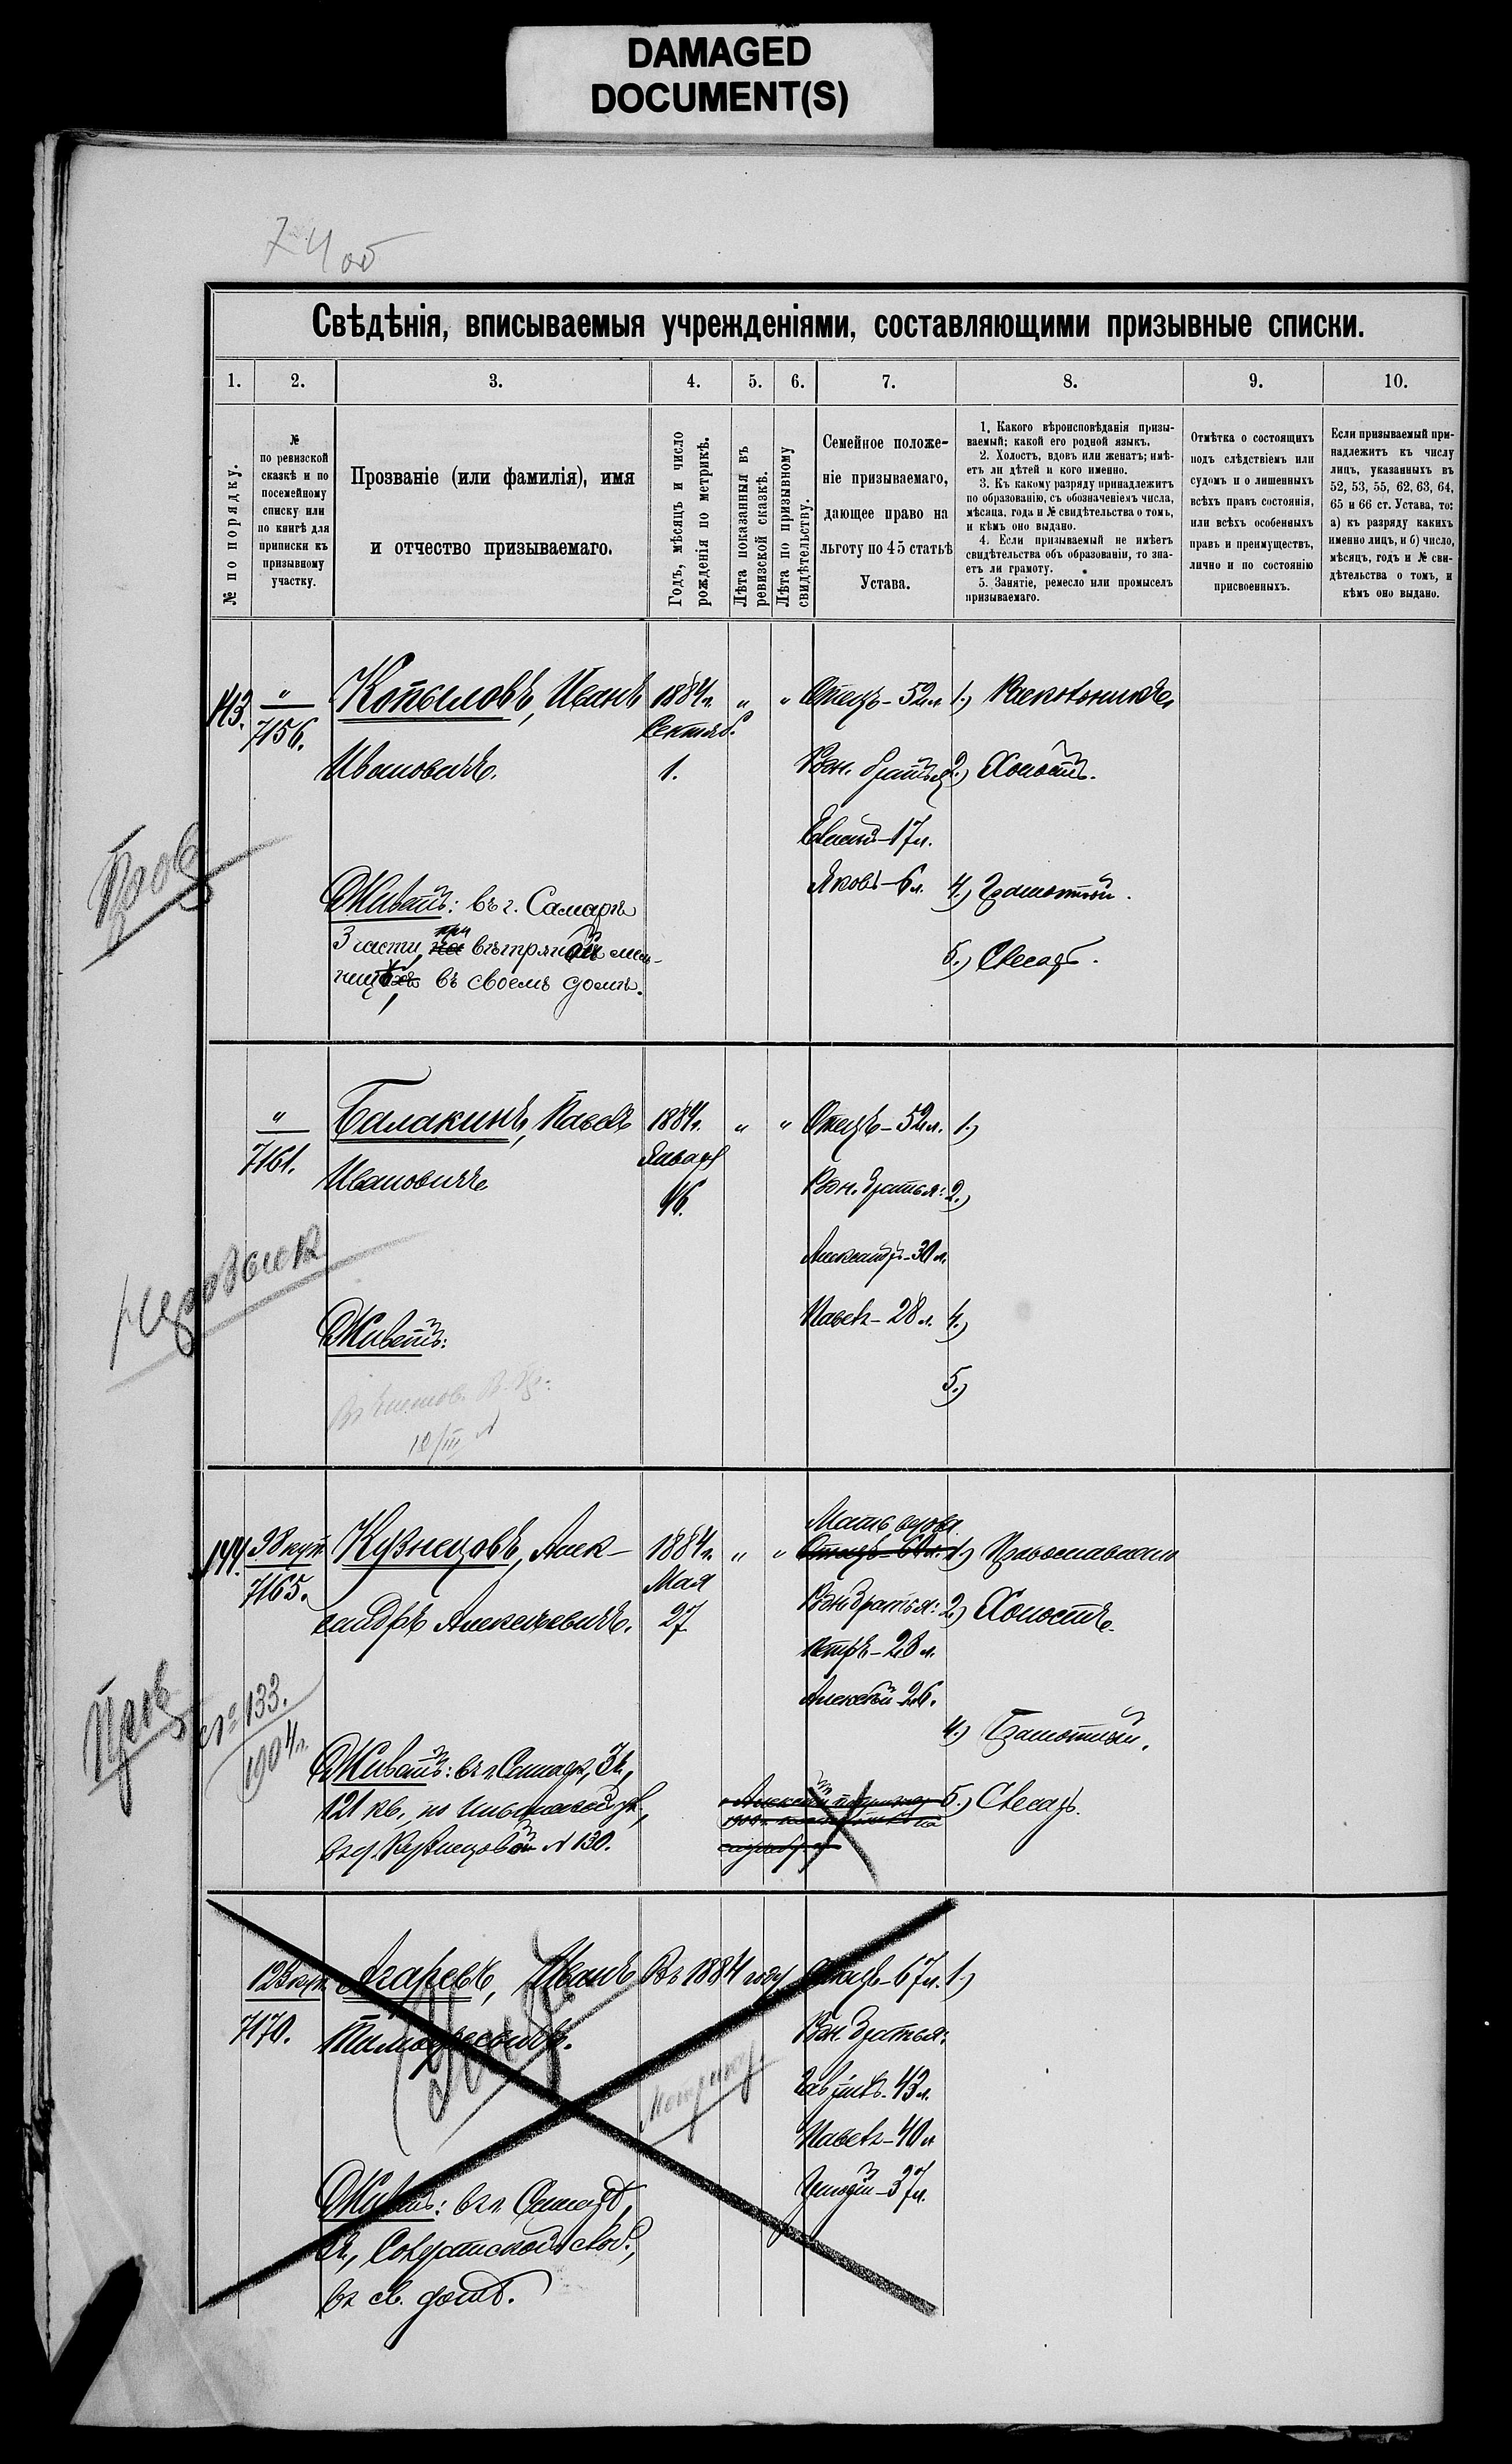 DAMAGED
DOCUMENT(S)
74 об
Свѣдѣнія, вписываемыя учрежденіями, составляющими призывные списки.
1. 2. 3. 4. 5. 6. 7. 8. 9. 10.
№ по порядку.
№
по ревизской
сказкѣ и по
посемейному
списку или
по книгѣ для
приписки къ
призывному
участку.
Прозваніе (или фамилія), имя
и отчество призываемаго.
Годъ, мѣсяцъ и число
рожденія по метрикѣ.
Лѣта показанныя въ
ревизской сказкѣ.
Лѣта по призывному
свидѣтельству.
Семейное положе-
ніе призываемаго,
дающее право на
льготу по 45 статьѣ
Устава.
1. Какого вѣроисповѣданія призы-
ваемый; какой его родной языкъ.
2. Холостъ, вдовъ или женатъ; имѣ-
етъ ли дѣтей и кого именно.
3. Къ какому разряду принадлежитъ
по образованію, съ обозначеніемъ числа,
мѣсяца, года и № свидѣтельства о томъ,
и кѣмъ оно выдано.
4. Если призываемый не имѣетъ
свидѣтельства объ образованіи, то зна-
етъ ли грамоту.
5. Занятіе, ремесло или промыселъ
призываемаго.
Отмѣтка о состоящихъ
подъ слѣдствіемъ или
судомъ и о лишенныхъ
всѣхъ правъ состоянія,
или всѣхъ особенныхъ
правъ и преимуществъ,
лично и по состоянію
присвоенныхъ.
Если призываемый при-
надлежитъ къ числу
лицъ, указанныхъ въ
52, 53, 55, 62, 63, 64,
65 и 66 ст. Устава, то:
а) къ разряду какихъ
именно лицъ, и б) число,
мѣсяцъ, годъ и № сви-
дѣтельства о томъ, и
кѣмъ оно выдано.
143. " Копыловъ, Иванъ 1884 г. " " Отецъ – 52 л. 1.) Раскольникъ
7156. Сентяб.
Ивановичъ. 1. Родн. братья 2.) Холостъ.
17 л.
Яковъ – 6 л. 4.) Грамотный.
Живетъ: въ г. Самарѣ
3 части, при вѣтряной мель-
ницѣ, въ своемъ домѣ.
5.) Слесарь.
" Балакинъ, Павелъ 1884 г. " " Отецъ – 52 л. 1.)
7161. Январ
Ивановичъ 16. Родн. братья: 2.)
Александръ – 30 л.
Павелъ – 28 л. 4.)
Живетъ:
5.)
Мать вдова
144. 38 куп. Кузнецовъ, Алек- 1884 г. " " Отецъ – 60 л. 1.) Православнаго
7165. Мая
сандръ Алексѣевичъ. 27 Родн. братья: 2.) Холостъ.
Петръ – 28 л.
Алексѣй 26.
№ 133.
1904 г.
4.) Грамотный.
Живетъ: въ г. Самарѣ, 3 ч.,
121 кв., по
въ д. Кузнецовой № 130.
5.) Слесарь.
123 куп. Агаревъ, Иванъ Въ 1884 году Отецъ – 67 л. 1.)
7170. Родн. братья:
43 л.
Метрику
Павелъ – 40 л
37 л.
Живетъ: въ г. Самарѣ,
въ св. домѣ.